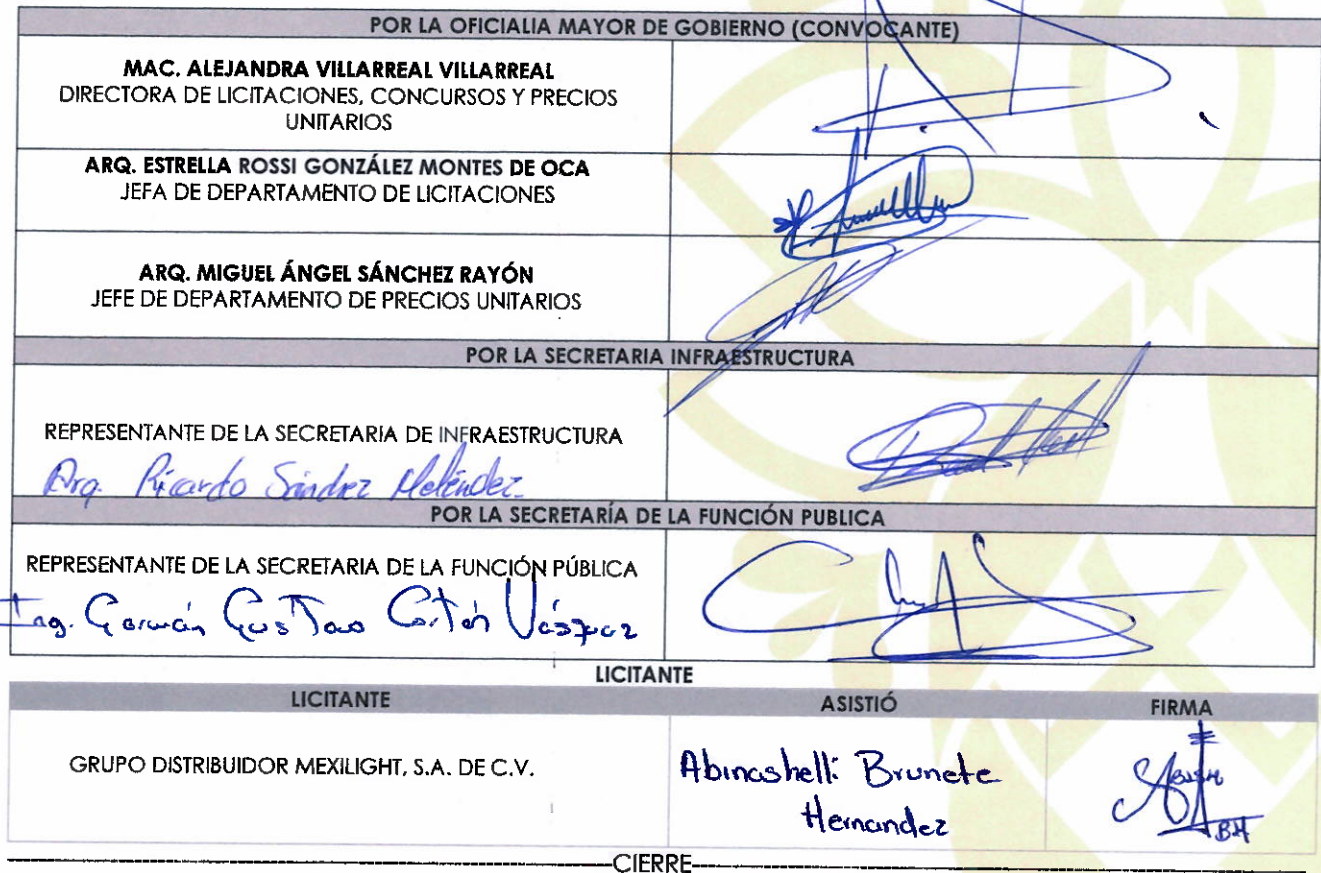 POR LA OFICIALIA MAYOR DE GOBIERNO (CONVOCANTE)
MAC. ALEJANDRA VILLARREAL VILLARREAL
DIRECTORA DE LICITACIONES, CONCURSOS Y PRECIOS
UNITARIOS
ARQ. ESTRELLA ROSSI GONZÁLEZ MONTES DE OCA
JEFA DE DEPARTAMENTO DE LICITACIONES
ARQ. MIGUEL ÁNGEL SÁNCHEZ RAYÓN
JEFE DE DEPARTAMENTO DE PRECIOS UNITARIOS
POR LA SECRETARIA INFRAESTRUCTURA
REPRESENTANTE DE LA SECRETARIA DE INFRAESTRUCTURA
Arq. Ricardo Sánchez Meléndez
POR LA SECRETARÍA DE LA FUNCIÓN PUBLICA
REPRESENTANTE DE LA SECRETARIA DE LA FUNCIÓN PÚBLICA
Ing. Germán Gustavo Vásquez
LICITANTE
LICITANTE ASISTIÓ FIRMA
GRUPO DISTRIBUIDOR MEXILIGHT, S.A. DE C.V.
Abinashelli Brunete
Hernandez
BH
CIERRE